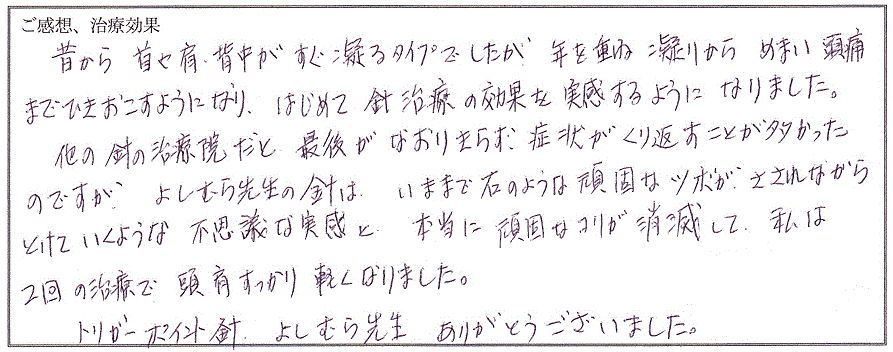 ご感想、治療効果
昔から 首や肩、背中が すぐ凝るタイプでしたが 年を重ね 凝りから めまい 頭痛
までひきおこすようになり、はじめて 針治療の効果を 実感するように なりました。
他の針の治療院だと 最後が なおりきらず、症状が くり返すことが多かった
のですが、よしむら先生の針は、いままで石のような頑固なツボが、さされながら
とけていくような 不思議な実感と、本当に 頑固なコリが消滅して、私は
2回の治療で 頭肩すっかり 軽くなりました。
トリガーポイント針、よしむら先生 ありがとうございました。